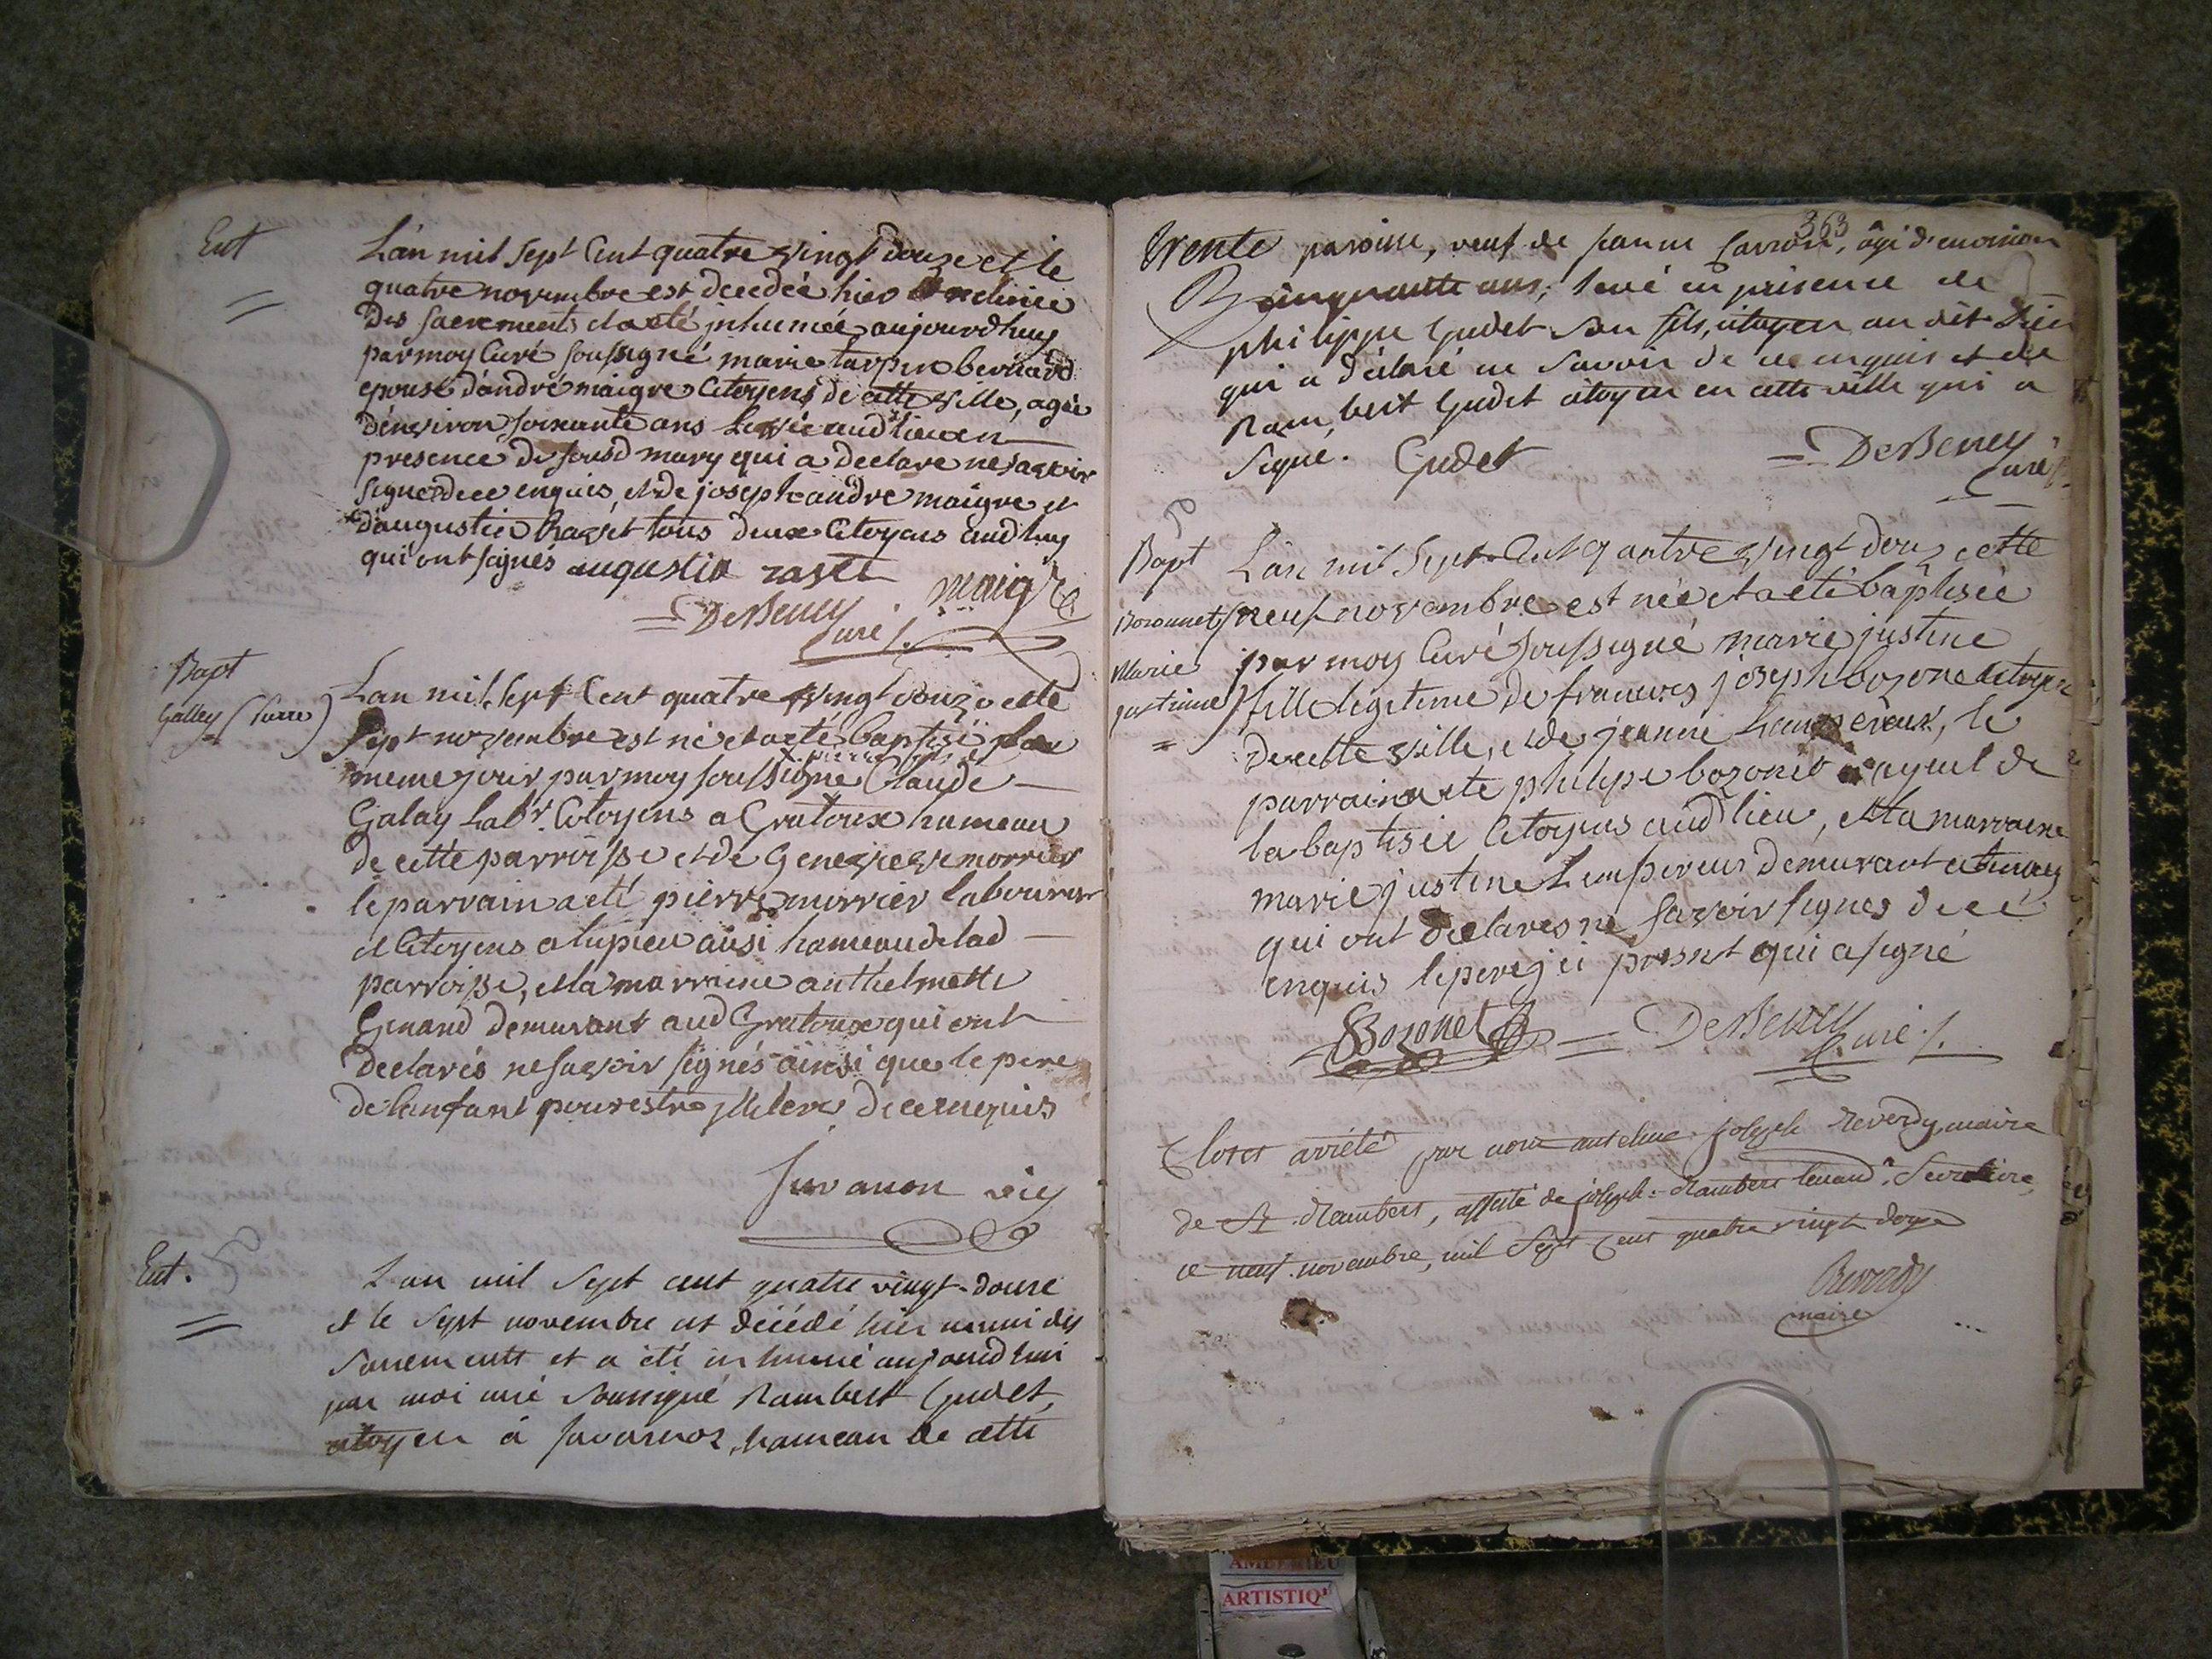 Ent
L'an mil sept Cent quatre vingt douze et le
quatre novembre est decedée hier
des sacrements et a eté inhumée aujourdhuy
par moy Curé soussigné marie tarpin bernard
epouse d'andré maigre Citoyens de cette ville, agée
d'environ soixante ans Levée aud lieu en
presence de sousd mary qui a declare ne savoir
signer de ce enquis, et de joseph andre maigre et
d'augustin Ravet tous deux Citoyens aud lieu
qui ont signés augustin ravet
maigre
= DeBeney
Curé ./.
Bapt
Galley (Pierre)
L'an mil sept Cent quatre vingt douze et le
sept novembre est né et a eté baptisé le
x pierre fils de
meme jour par moy soussigné Claude
Galay Labr. Citoyens a Gratoux hameau
de cette parroisse et de Genevieve morrier
le parrain a eté pierre morrier laboureur
et Citoyens a lupieu aussi hameau de lad
parroisse, et la marraine anthelmette
Genand demurant aud Gratoux qui ont
declarés ne savoir signés ainsi que le pere
de l'enfant pour estre illeteré de ce enquis
Juvanon vic
Ent.
L'an mil sept cent quatre vingt-douze
et le sept novembre est décédé hier muni des
sacrements et a été inhumé aujourd'hui
par moi curé soussigné Rambert Gudet,
citoyen à Javornoz, hameau de cette
363
Trente paroisse, veuf de Jeanne Carron, âgé d'environ
cinquante ans; levé en présence de
philippe Gudet son fils, citoyen au dit lieu
qui a déclaré ne savoir de ce enquis et de
Rambert Gudet citoyen en cette ville qui a
signé. Gudet
= DeBeney
Curé ./.
Bapt
Bozonnet
Marie
justinne
=
L'an mil sept Cent quatre vingt douz et le
neuf novembre est née et a eté baptisée
par moy Curé soussigné marie justine
fille legitime de francois joseph bozonet citoyen
de cette ville, et de jeanne Lempereur, le
parrain a ete philipe bozonet ayeul de
la baptisée Citoyens aud lieu, et la marraine
marie justine Lempereur demurant a
qui ont declares ne savoir signes de ce
enquis le pere ici present qui a signé
Bozonet
= DeBeney
Curé ./.
Clos et arrêté par nous anthelme joseph Reverdy maire
de St Rambert, assisté de joseph-Rambert secretaire,
ce neuf novembre, mil Sept Cent quatre vingt douze
Reverdy
maire
ARTISTIQ'